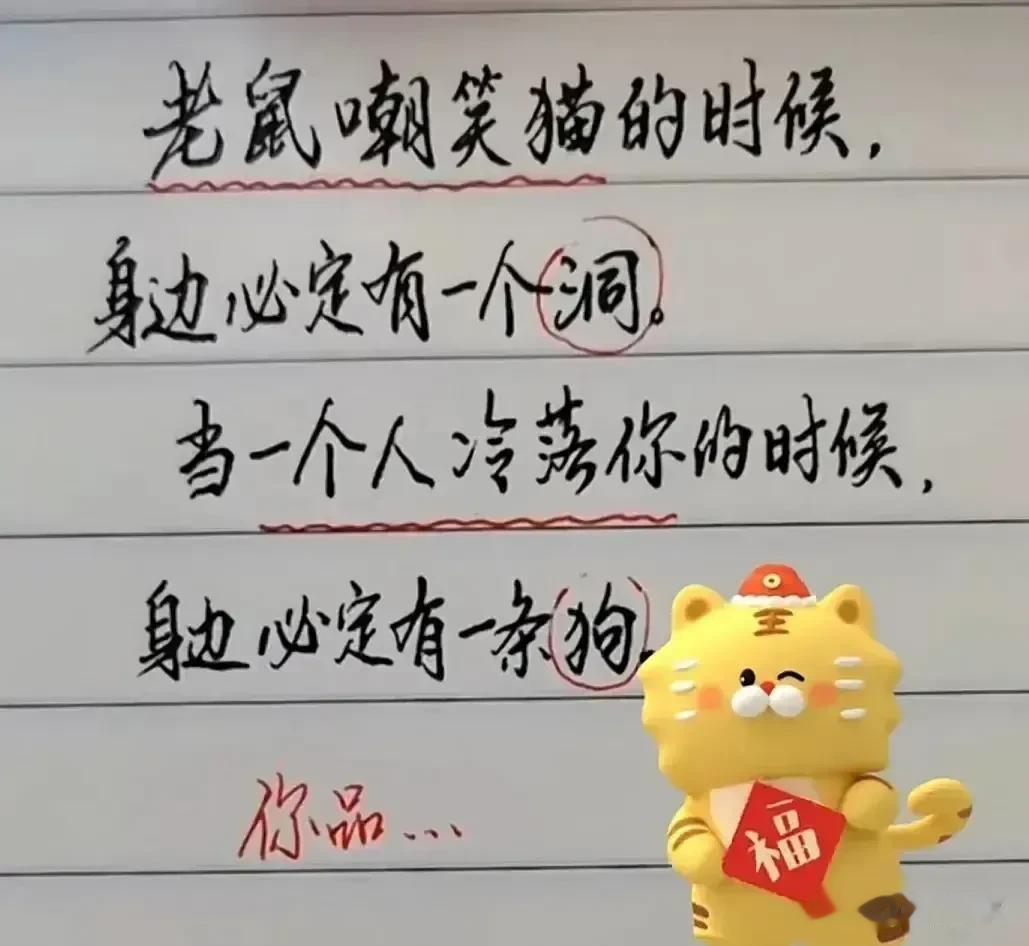 老鼠嘲笑猫的时候,
身边必定有一个洞。
当一个人冷落你的时候,
身边必定有一条狗。
你品...
王
福